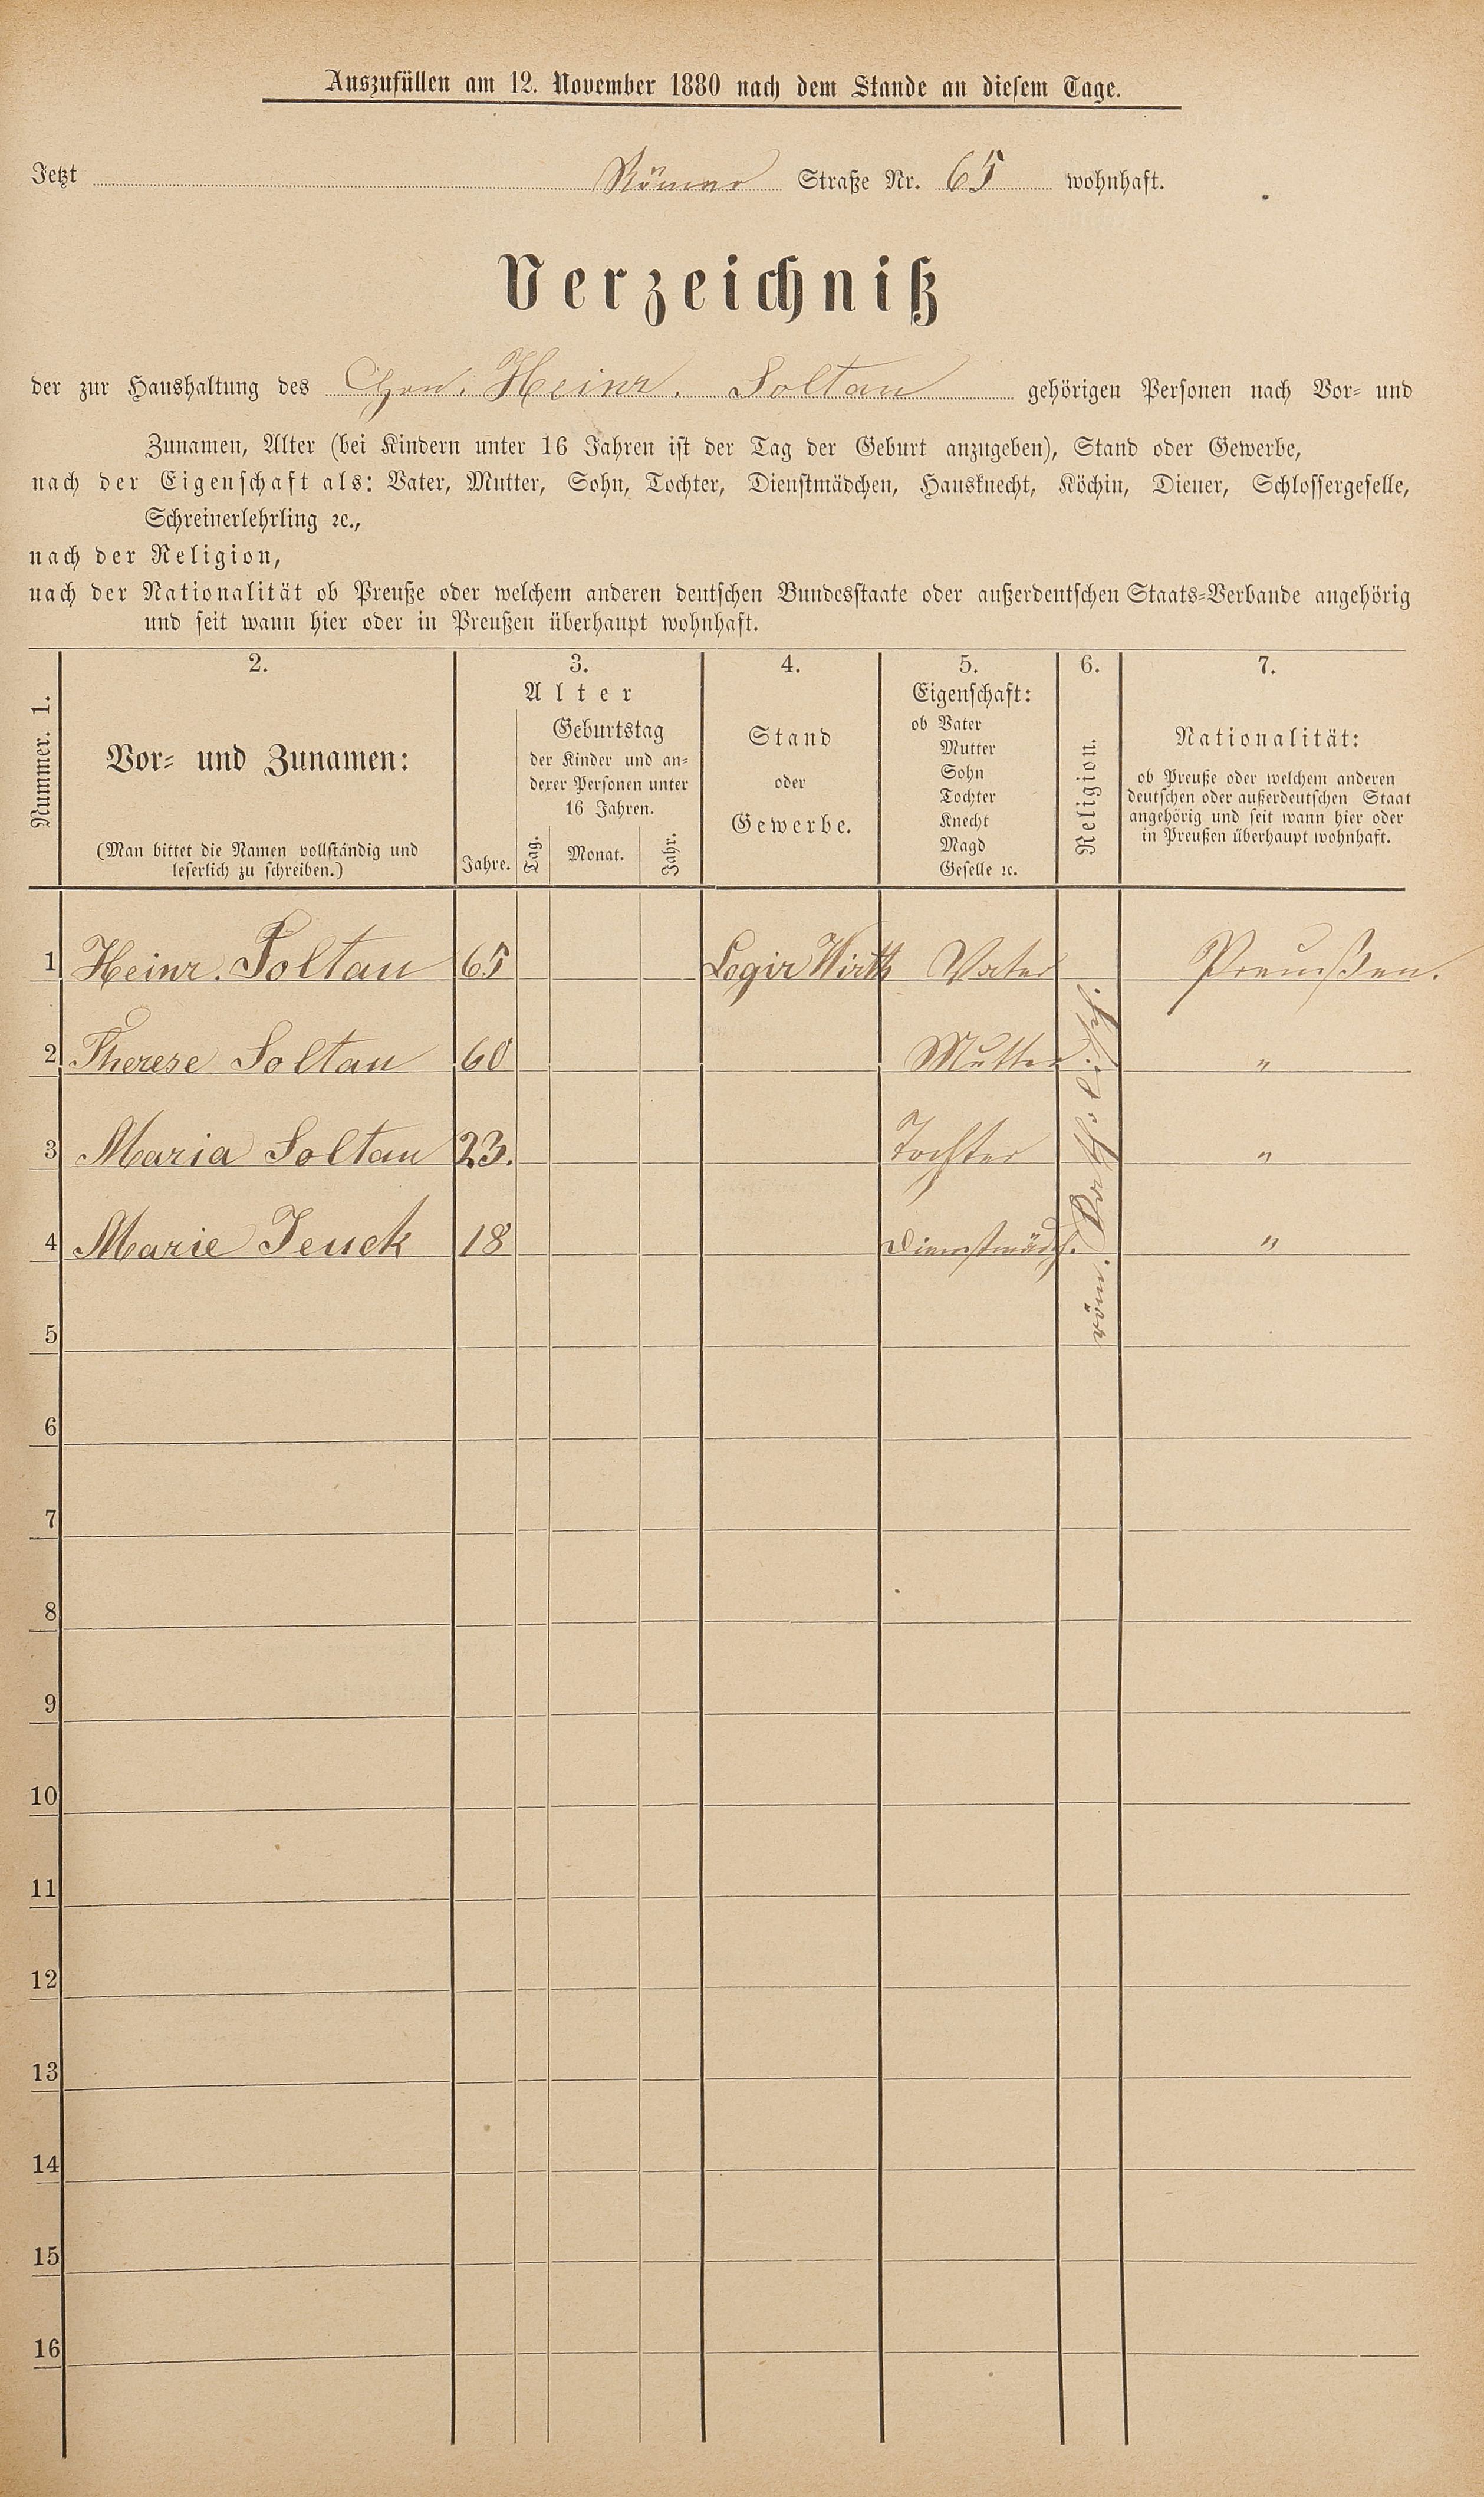 Auszufüllen am 12. November 1880 nach dem Stande an diesem Tage.
Jetzt Römer Straße Nr. 65 wohnhaft.
Verzeichniß
der zur Haushaltung des Hrn. Heinr. Soltau gehörigen Personen nach Vor- und
Zunamen, Alter (bei Kindern unter 16 Jahren ist der Tag der Geburt anzugeben), Stand oder Gewerbe,
nach der Eigenschaft als: Vater, Mutter, Sohn, Tochter, Dienstmädchen, Hausknecht, Köchin, Diener, Schlossergeselle,
Schreinerlehrling ꝛc.,
nach der Religion,
nach der Nationalität ob Preuße oder welchem anderen deutschen Bundesstaate oder außerdeutschen Staats-Verbande angehörig
und seit wann hier oder in Preußen überhaupt wohnhaft.
Nummer. 1.
2.
Vor- und Zunamen:
(Man bittet die Namen vollständig und
leserlich zu schreiben.)
3.
Alter
Jahre.
Geburtstag
der Kinder und an-
derer Personen unter
16 Jahren.
Tag. Monat. Jahr.
4.
Stand
oder
Gewerbe.
5.
Eigenschaft:
ob Vater
Mutter
Sohn
Tochter
Knecht
Magd
Geselle ꝛc.
6.
Religion.
7.
Nationalität:
ob Preuße oder welchem anderen
deutschen oder außerdeutschen Staat
angehörig und seit wann hier oder
in Preußen überhaupt wohnhaft.
1 Heinr. Soltau 65 Logir Wirth Vater Preußen.
2 Therese Soltau 60 Mutter "
3 Maria Soltau 23. Tochter "
4 Marie Jeuck 18 Dienstmädch. "
röm. Katholisch.
5
6
7
8
9
10
11
12
13
14
15
16